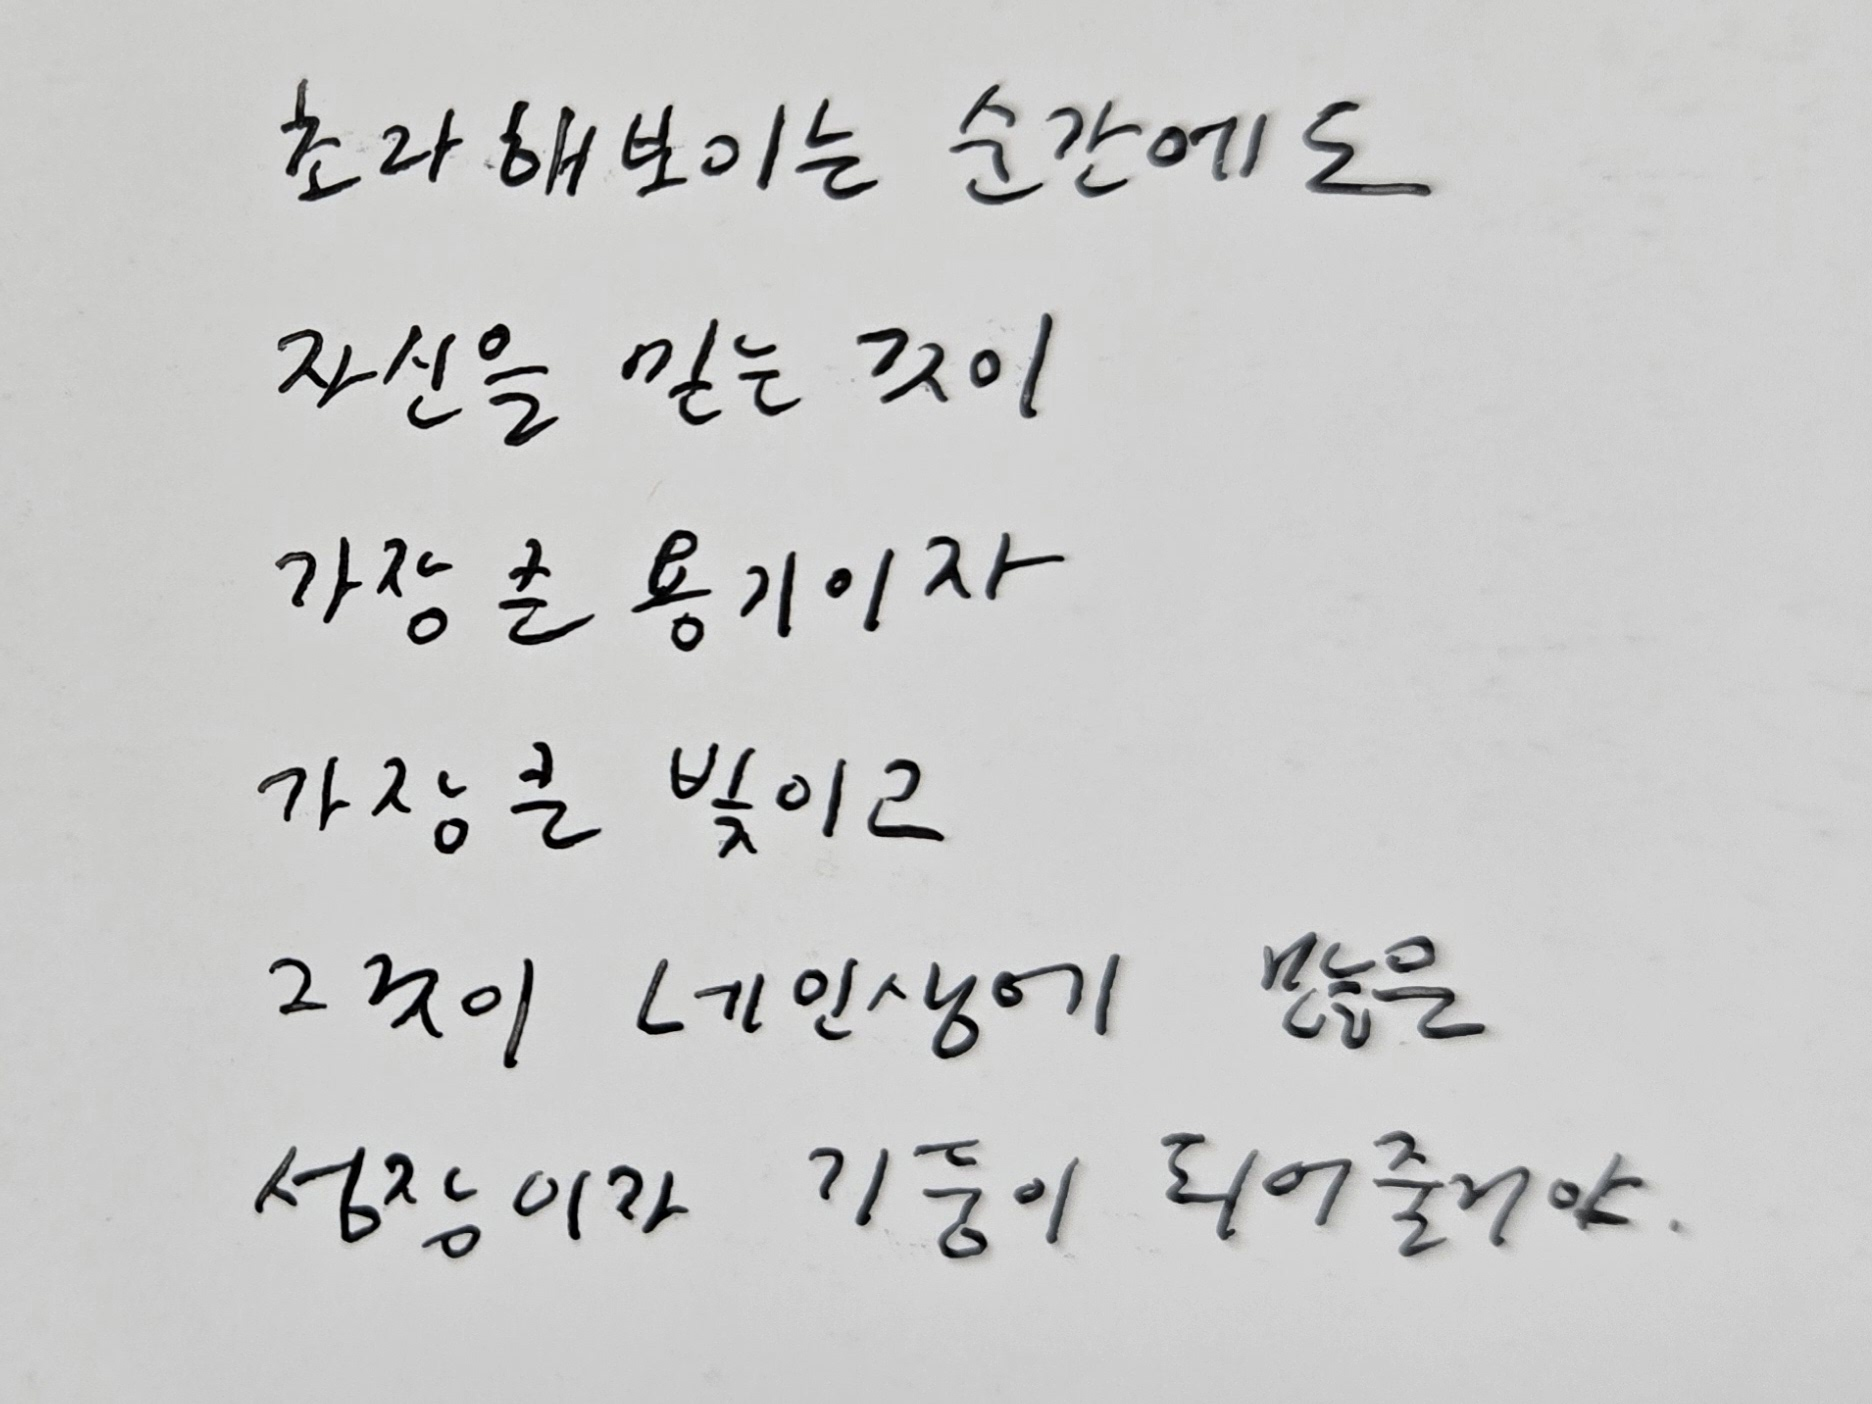 초라해보이는 순간에도
자신을 믿는 것이
가장 큰 용기이자
가장 큰 빛이고
그것이 네 인생에 많은
성장이자 기둥이 되어줄거야.